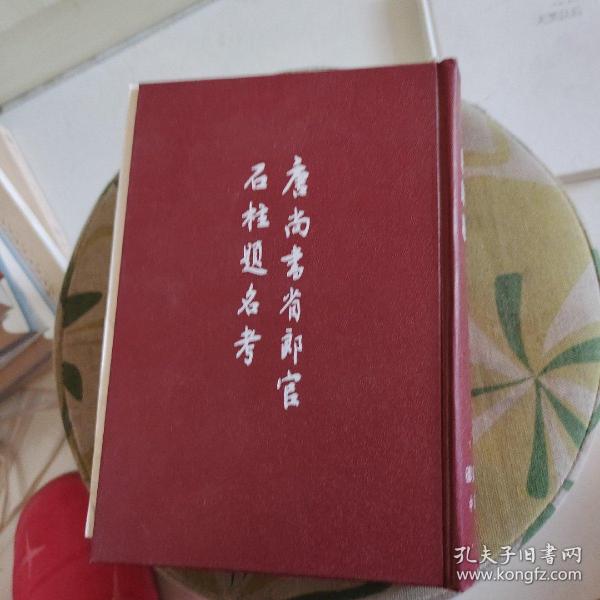 唐尚书省郎官
石柱题名考
孔夫子旧書网
www.kongfz.com